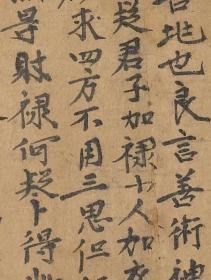 地也良言善術神
疑君子加禄小人加
求四方不用三思但
財禄何疑卜得